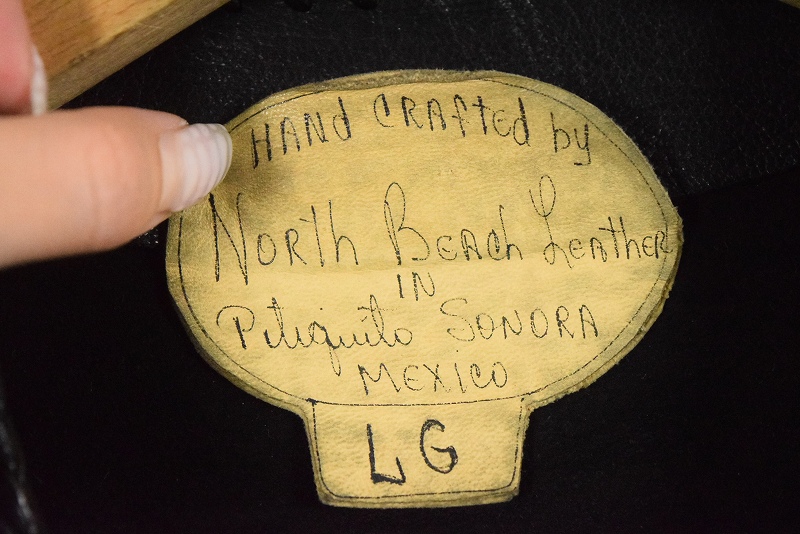 HANd CRAfted by
NORth BEACh LEAthER
IN
Pitiquito SONORA
MEXICO
LG